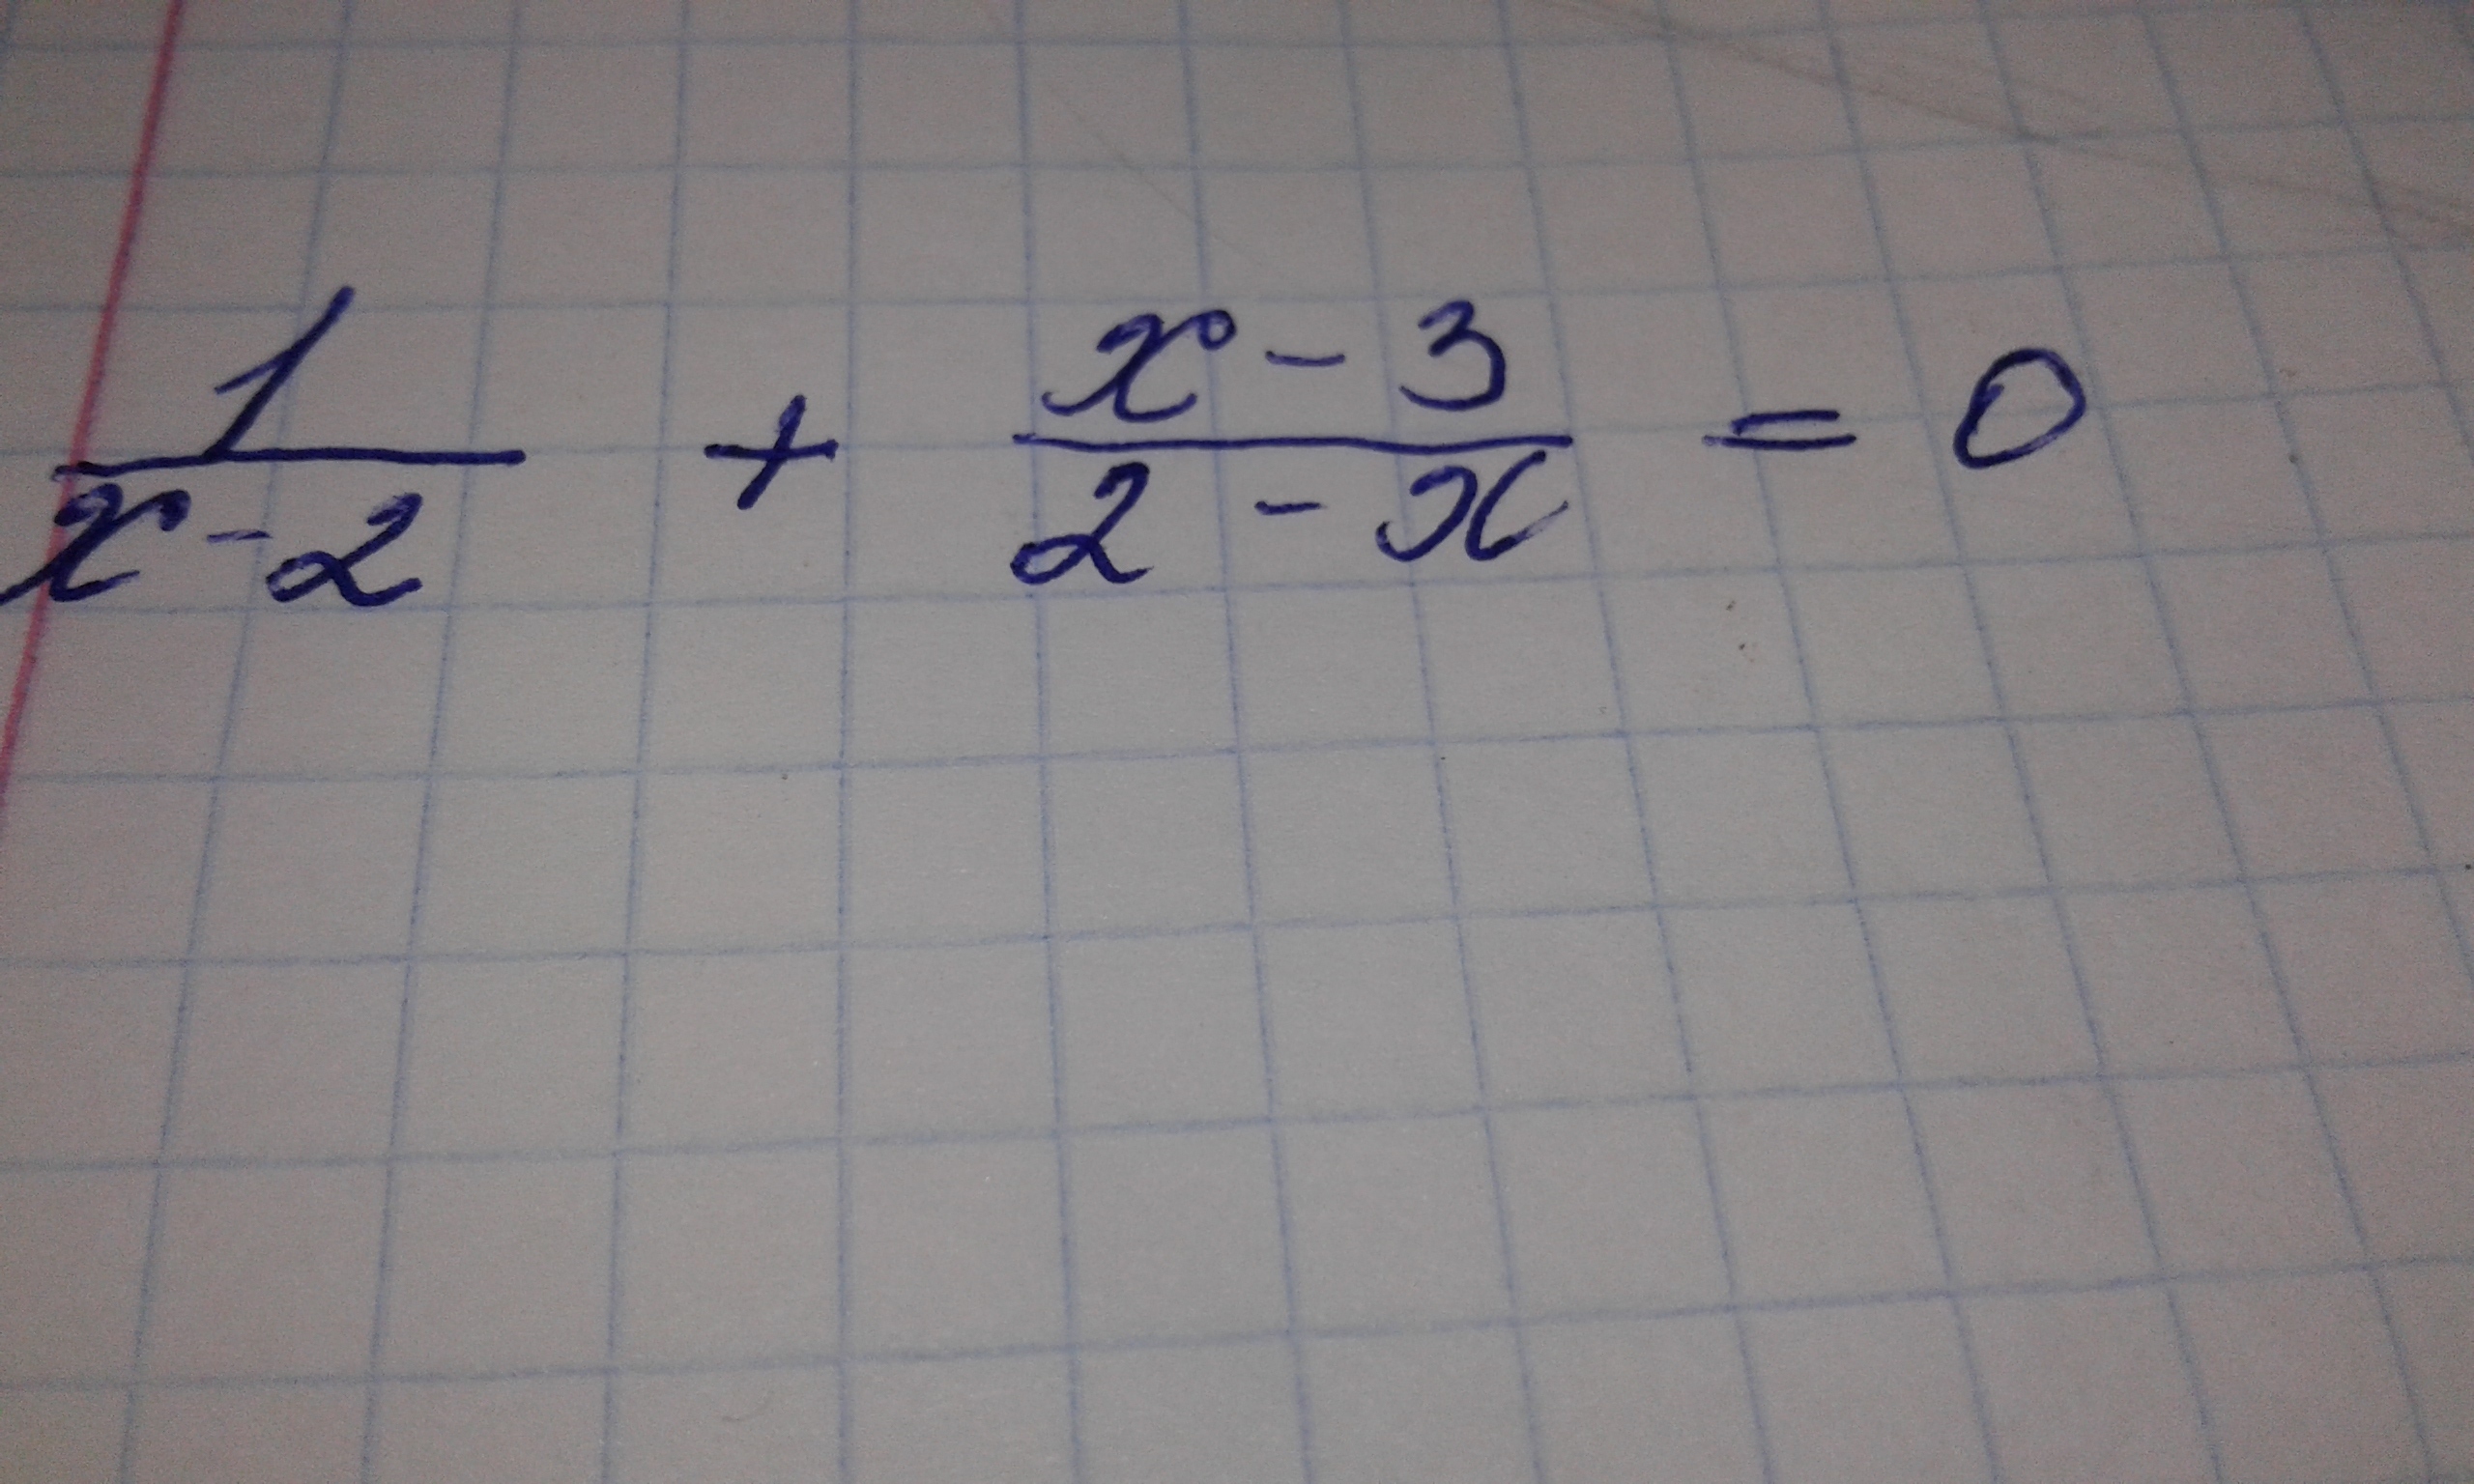 1/(x-2) + (x-3)/(2-x) = 0